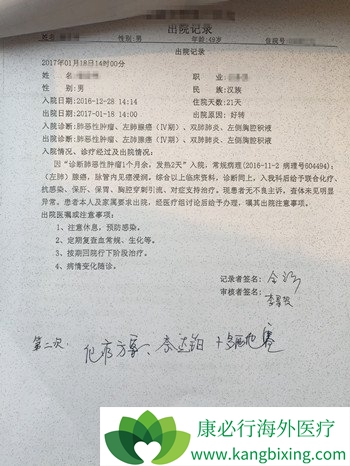 出院记录
性别:男 年龄:49岁 住院号
出院记录
2017年01月18日14时00分
姓 名: 职 业:
性 别:男 民 族:汉族
入院日期:2016-12-28 14:14 住院天数:21天
出院日期:2017-01-18 14:00 出院原因:好转
入院诊断:肺恶性肿瘤、左肺腺癌(Ⅳ期)、双肺肺炎、左侧胸腔积液
出院诊断:肺恶性肿瘤、左肺腺癌(Ⅳ期)、双肺肺炎、左侧胸腔积液
入院情况、诊疗经过及出院情况:
因“诊断肺恶性肿瘤1个月余，发热2天”入院，常规病理(2016-11-2 病理号604494):
(左肺)腺癌，脉管内见癌浸润。综合以上临床资料，诊断同上，入我科后给予联合化疗、
抗感染、保肝、保胃、胸腔穿刺引流、对症支持治疗。现患者无不良主诉，查体未见明显
异常。患者本人及家属要求出院，经医疗组讨论后给予办理，嘱其出院注意事项。
出院医嘱或注意事项:
1、注意休息，预防感染。
2、定期复查血常规、生化等。
3、按期回院行下阶段治疗。
4、病情变化随诊。
记录者签名:
审核者签名:
第二次: 化疗方案、奈达铂 + 多西他赛
康必行海外医疗
www.kangbixing.com